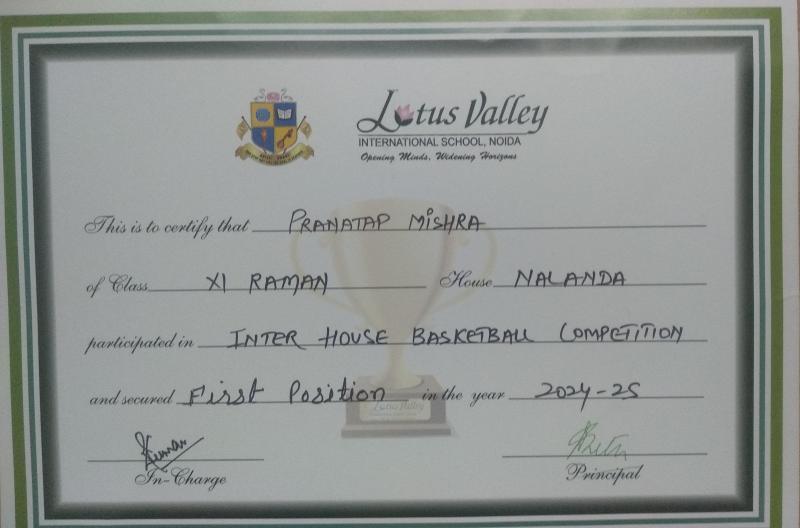 Lotus Valley
INTERNATIONAL SCHOOL, NOIDA
Opening Minds, Widening Horizons
This is to certify that PRANATAP MISHRA
of Class XI RAMAN House NALANDA
participated in INTER HOUSE BASKETBALL COMPETITION
and secured First Position in the year 2024-25
Lotus Valley
In-Charge Principal